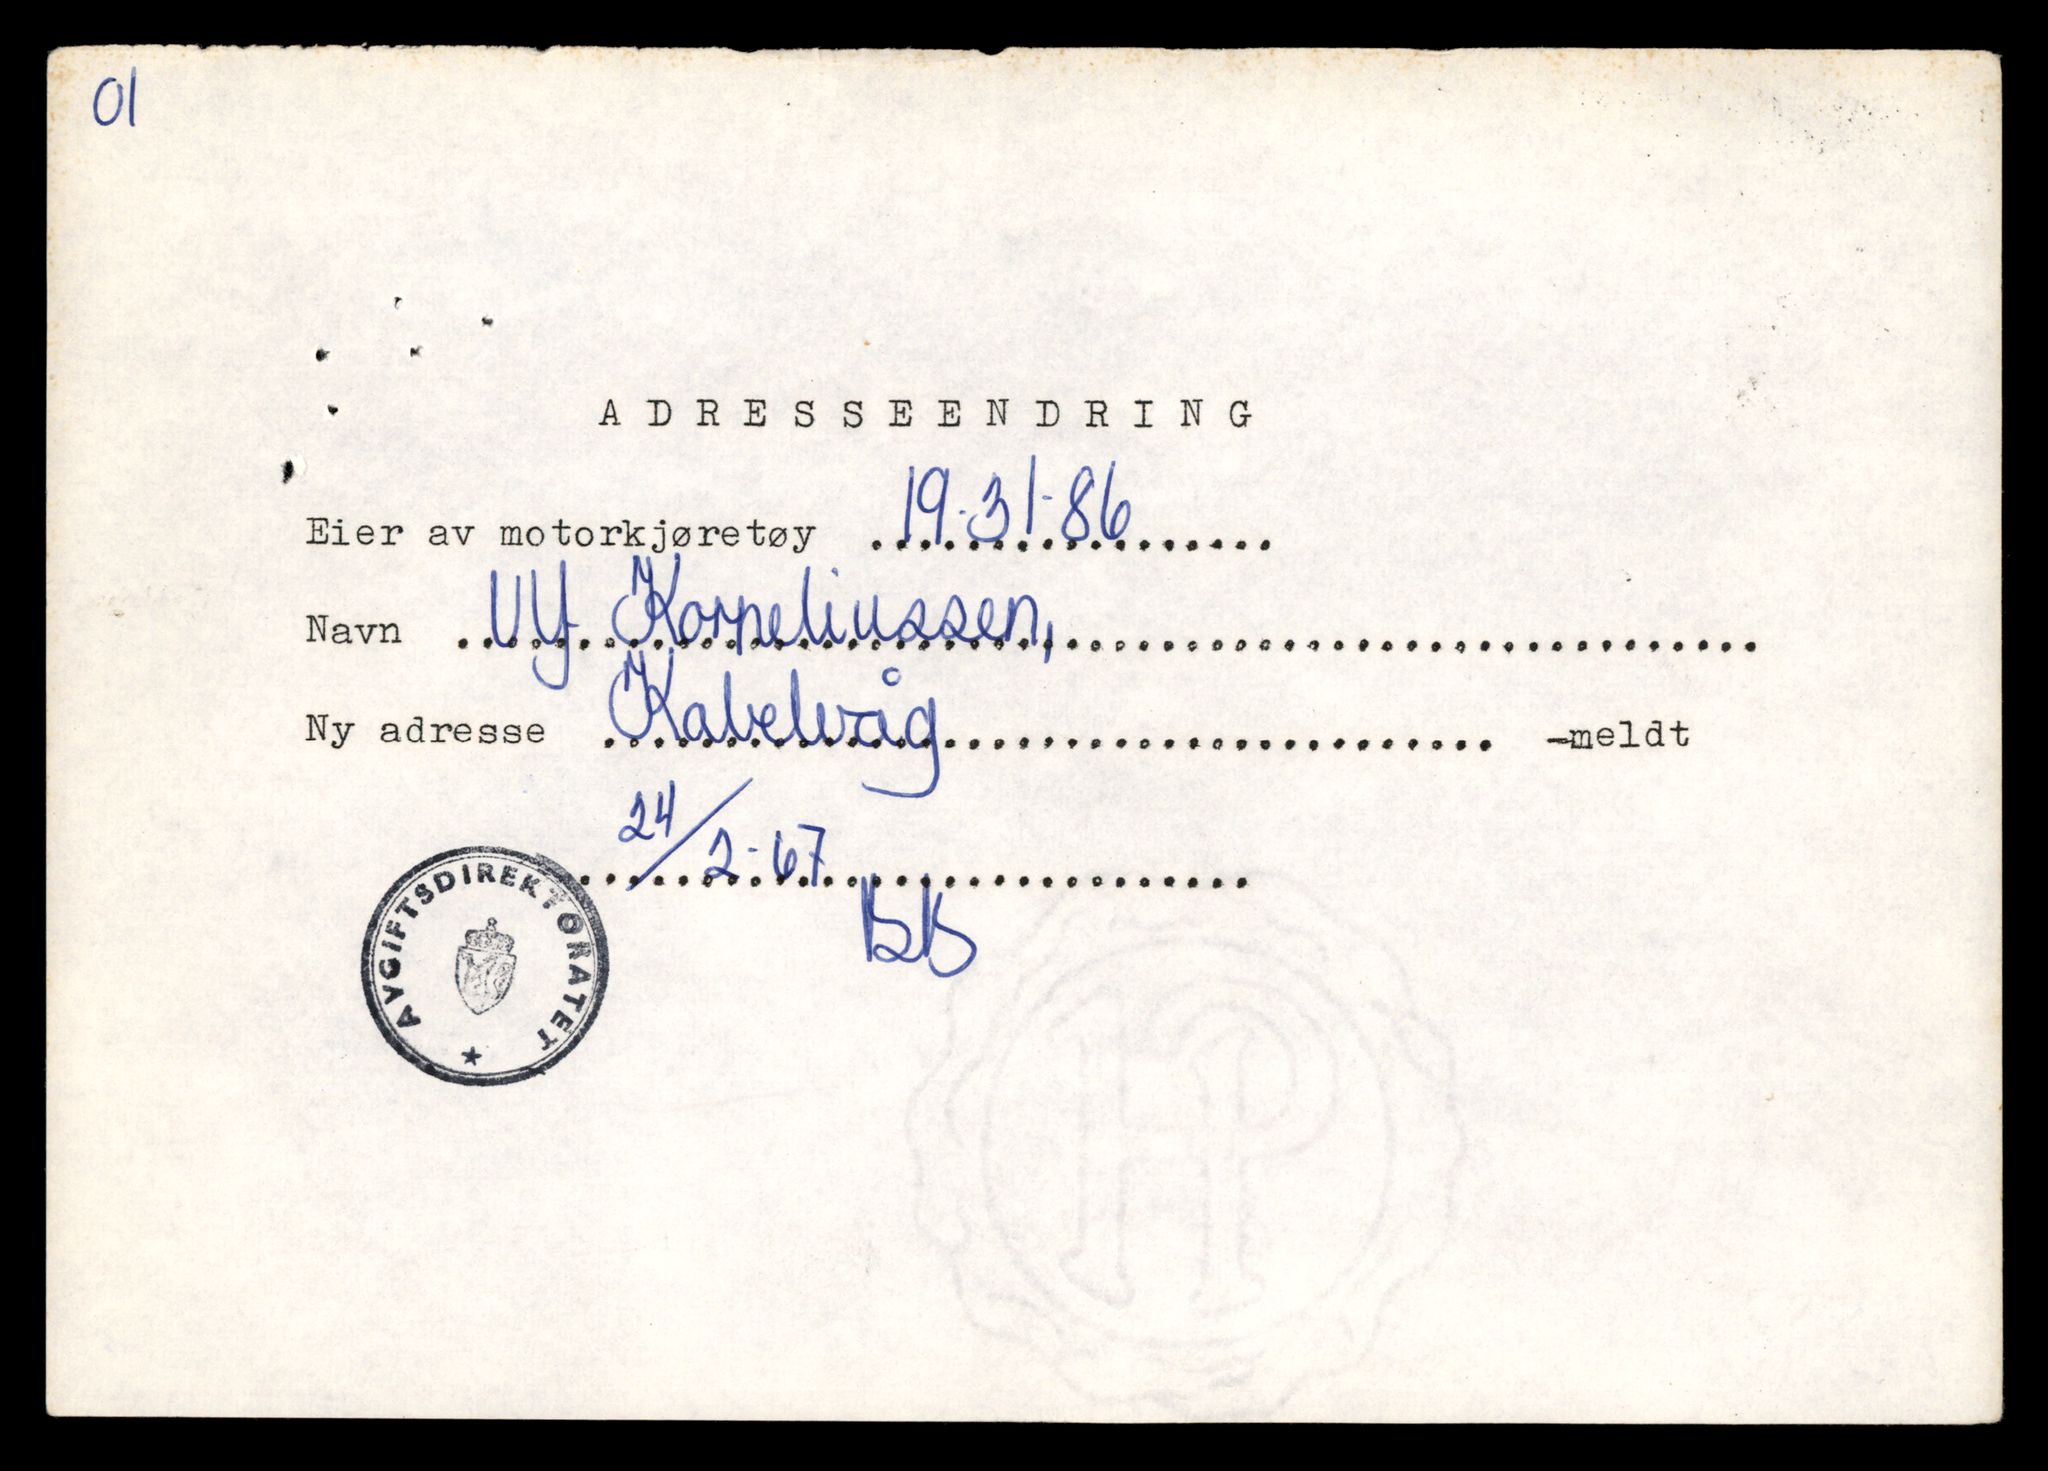 01
ADRESSEENDRING
Eier av motorkjøretøy 19-31-86
Navn Korneliussen,
Ny adresse Kabelvåg -meldt
24/2-67
BB
AVGIFTSDIREKTORATET
HP